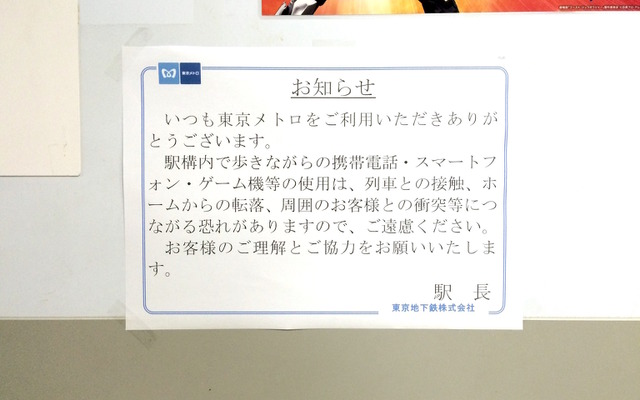 東京メトロ
お知らせ
いつも東京メトロをご利用いただきありが
とうございます。
駅構内で歩きながらの携帯電話・スマートフ
ォン・ゲーム機等の使用は、列車との接触、ホ
ームからの転落、周囲のお客様との衝突等につ
ながる恐れがありますので、ご遠慮ください。
お客様のご理解とご協力をお願いいたしま
す。
駅　長
東京地下鉄株式会社